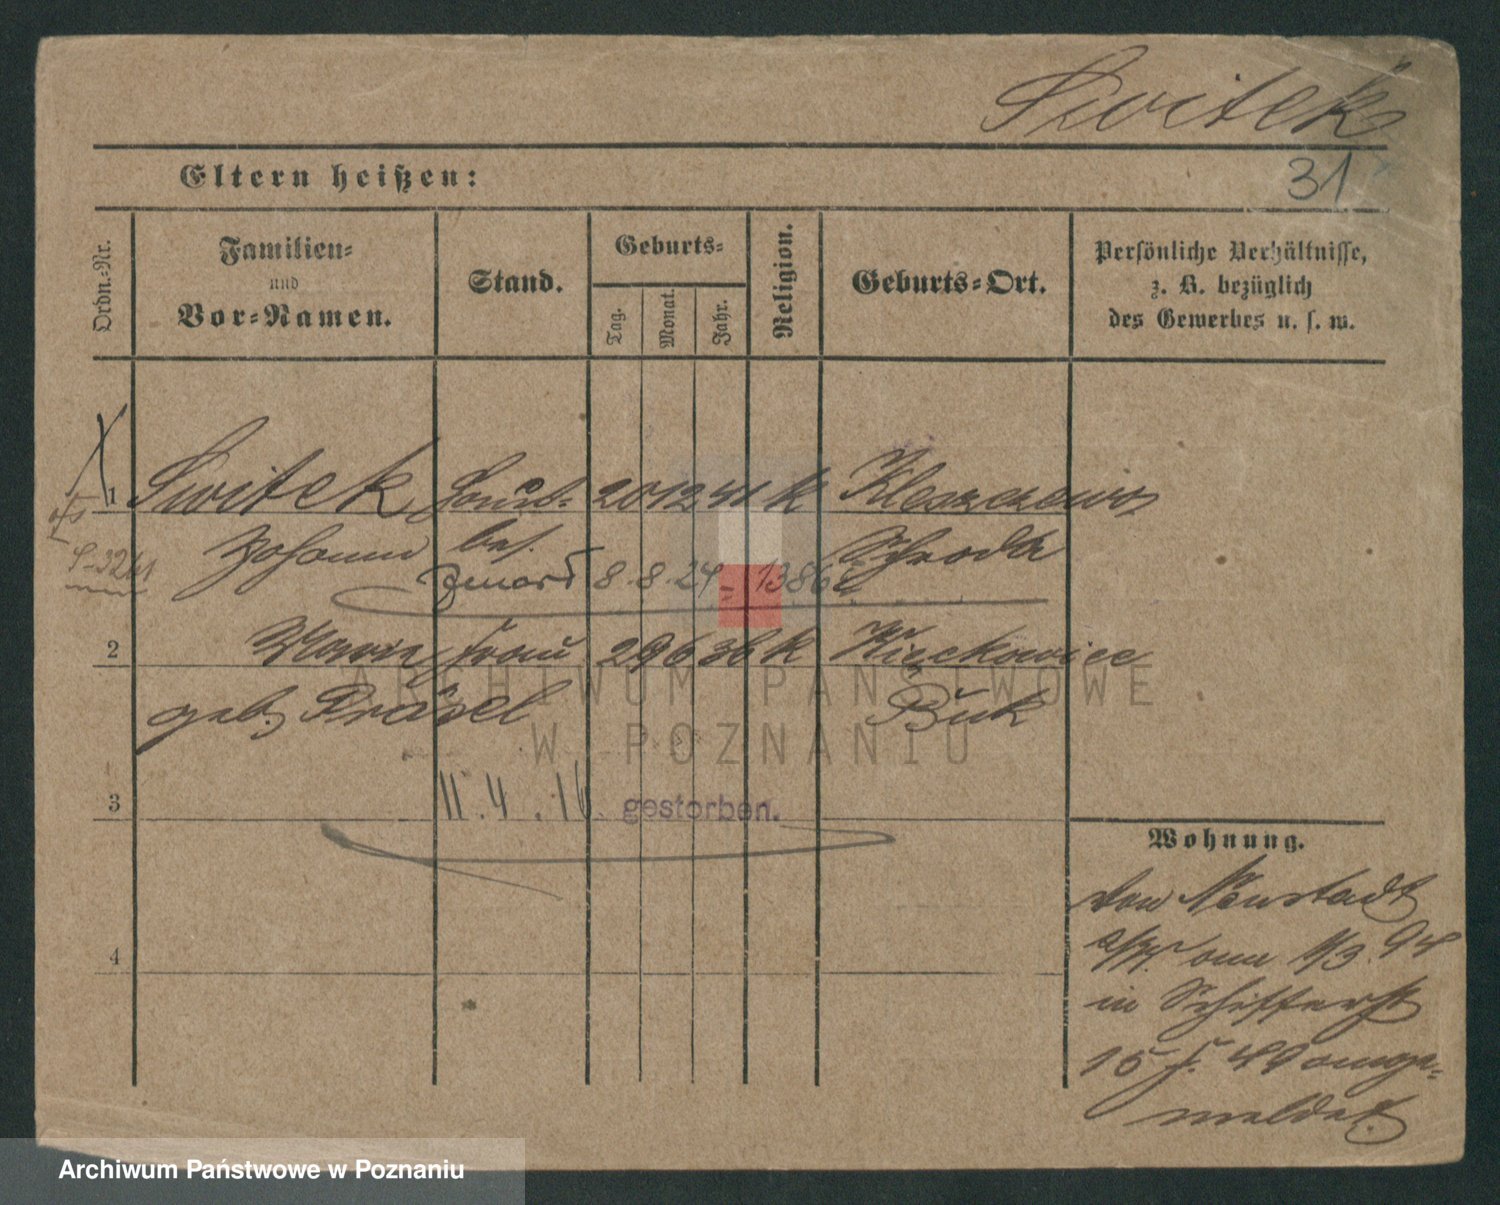 Switek
Eltern heißen:
31
Ordn.-Nr.
Familien-
und
Vor-Namen.
Stand.
Geburts-
Tag.
Monat.
Jahr.
Religion.
Geburts-Ort.
Persönliche Verhältnisse,
z. B. bezüglich
des Gewerbes u. s. w.
1 Switek 20 12 41 k Kleszczewo
Johann Schroda
8. 8. 24 = 1386
2 Marie Frau 29 6 36 k Wieckowice
geb. Buk
ARCHIWUM PAŃSTWOWE
W POZNANIU
3 11.4.16 gestorben.
Wohnung.
von Neustadt
am 1/3. 94
in Schifferst
15 b. ange-
meldet.
4
Archiwum Państwowe w Poznaniu